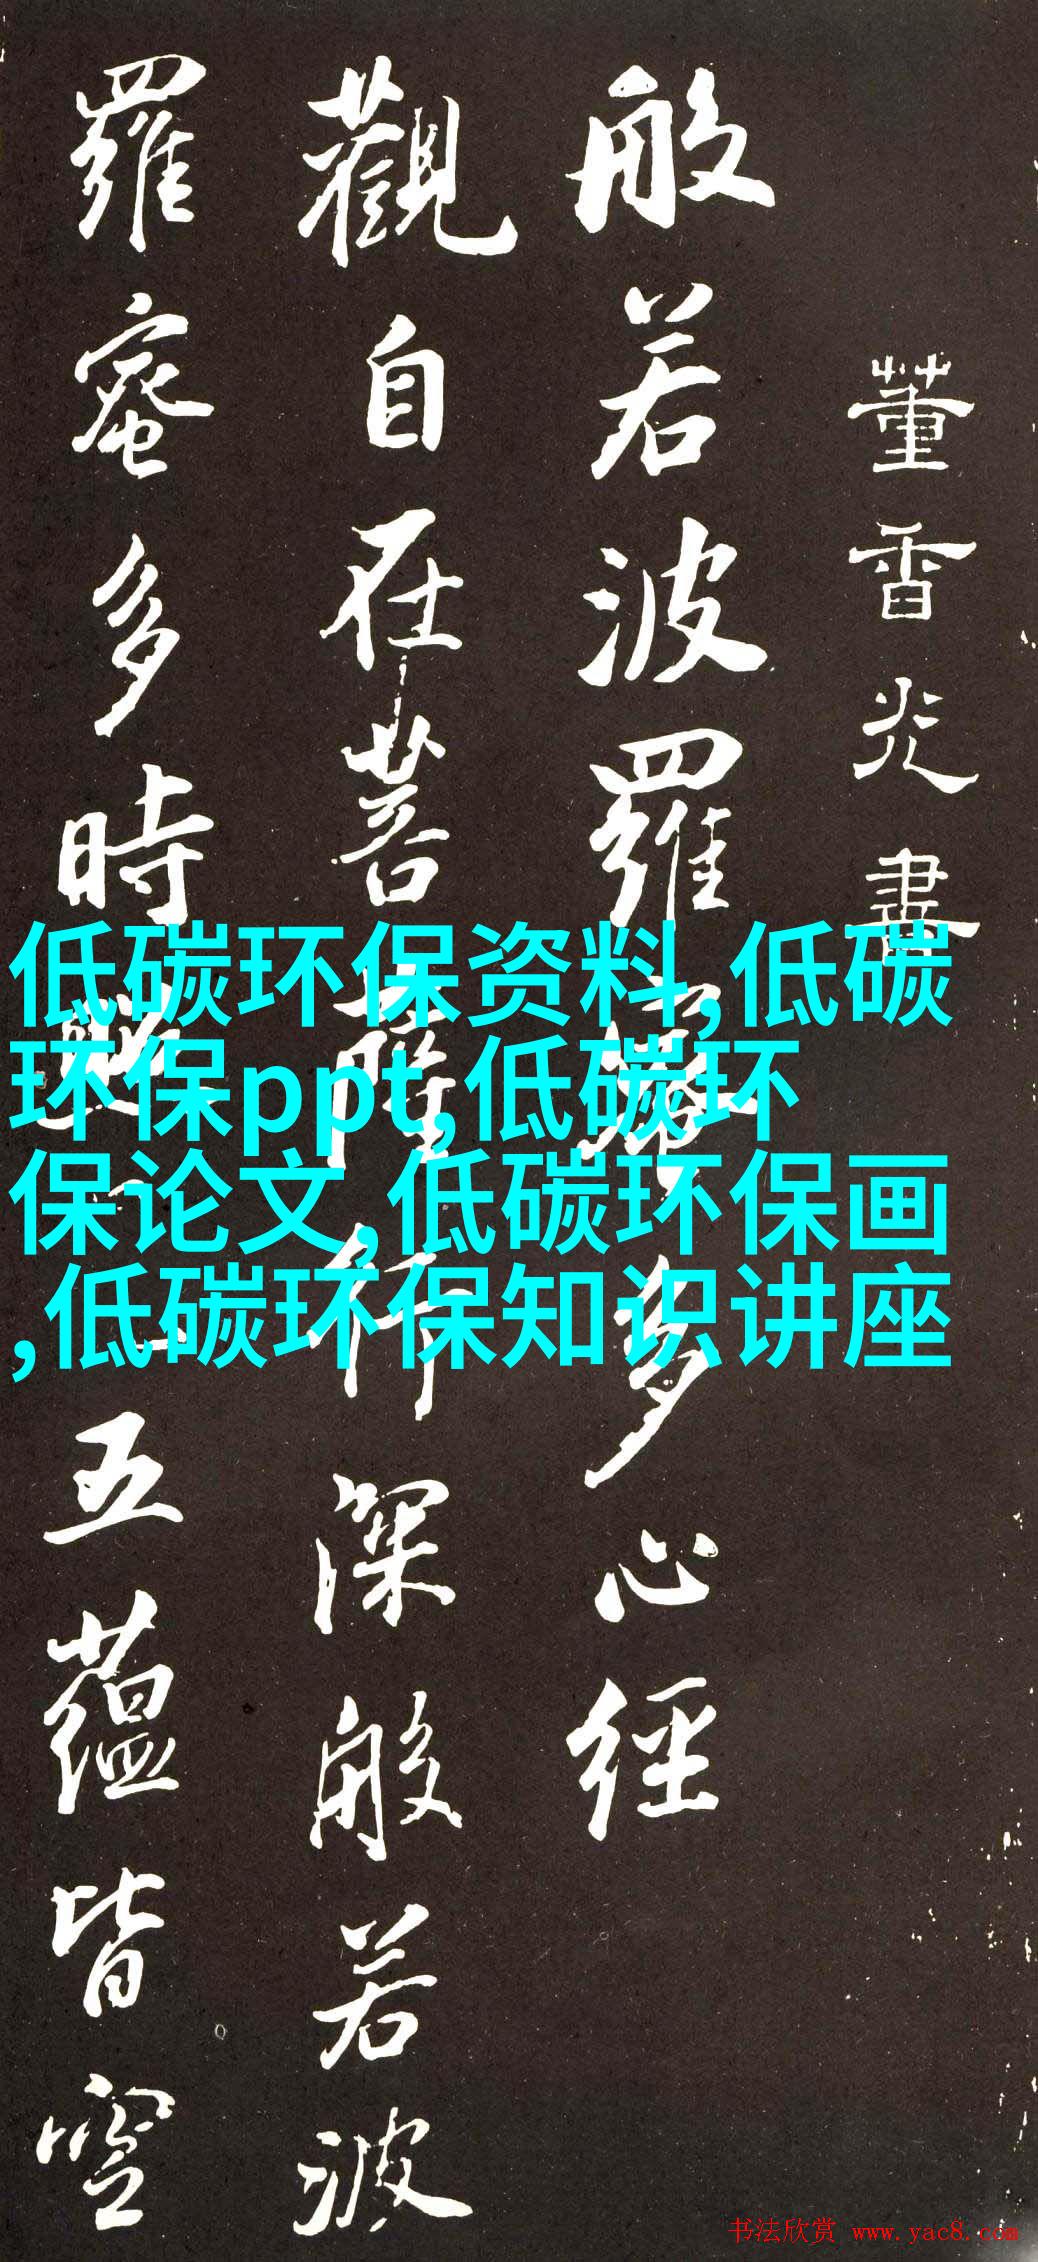 董香光書
般若波羅蜜多心經
觀自在菩薩行深般若波
羅蜜多時照見五蘊皆空
低碳环保资料,低碳
环保ppt,低碳环
保论文,低碳环保画
,低碳环保知识讲座
书法欣赏 www.yac8.com